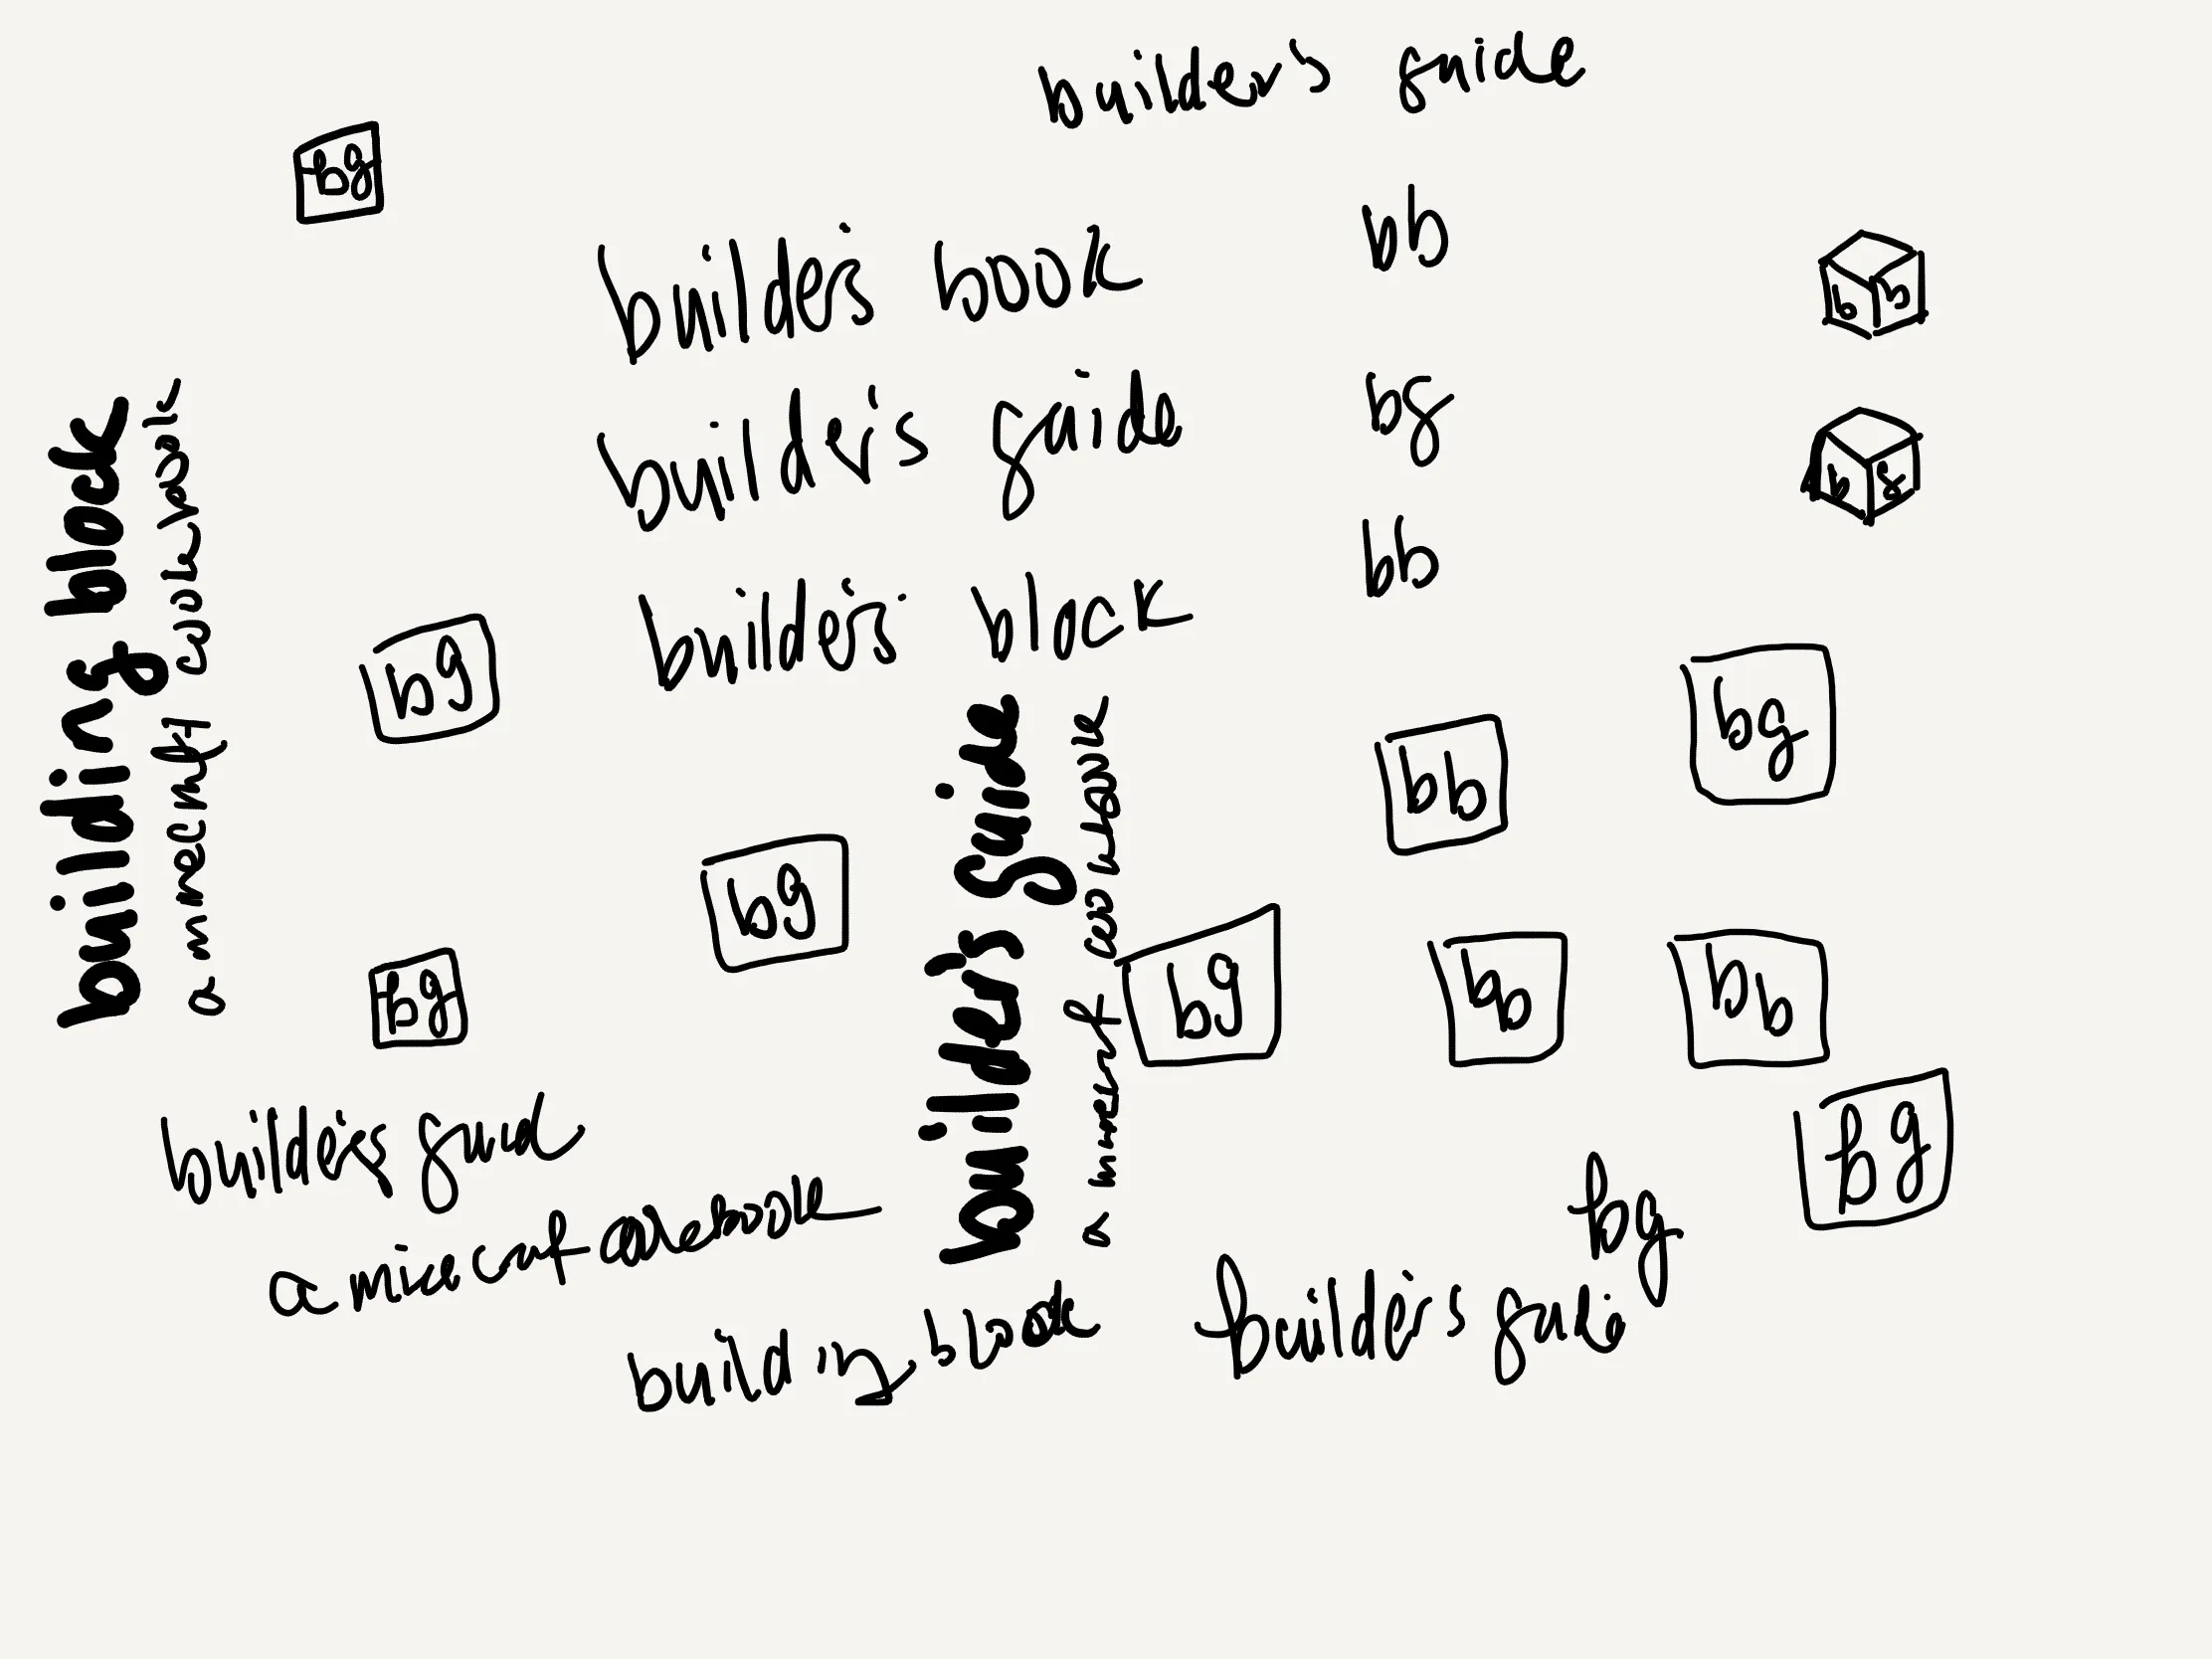 builder's guide
bg
builder's book
bb
bb
builder's guide
bg
bg
builder's block
bb
building block
a minecraft
bg
builder's guide
a minecraft
bb
bg
bg
bg
bg
bb
bb
builder's
a minecraft
bg
bg
builder's
building block